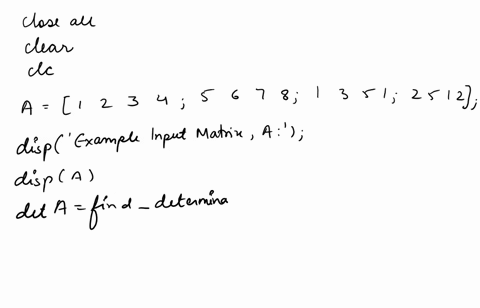 close all
clear
clc
A = [1 2 3 4 ; 5 6 7 8; 1 3 5 1; 2 5 1 2];
disp('Example Input Matrix, A:');
disp(A)
det A = find_determina